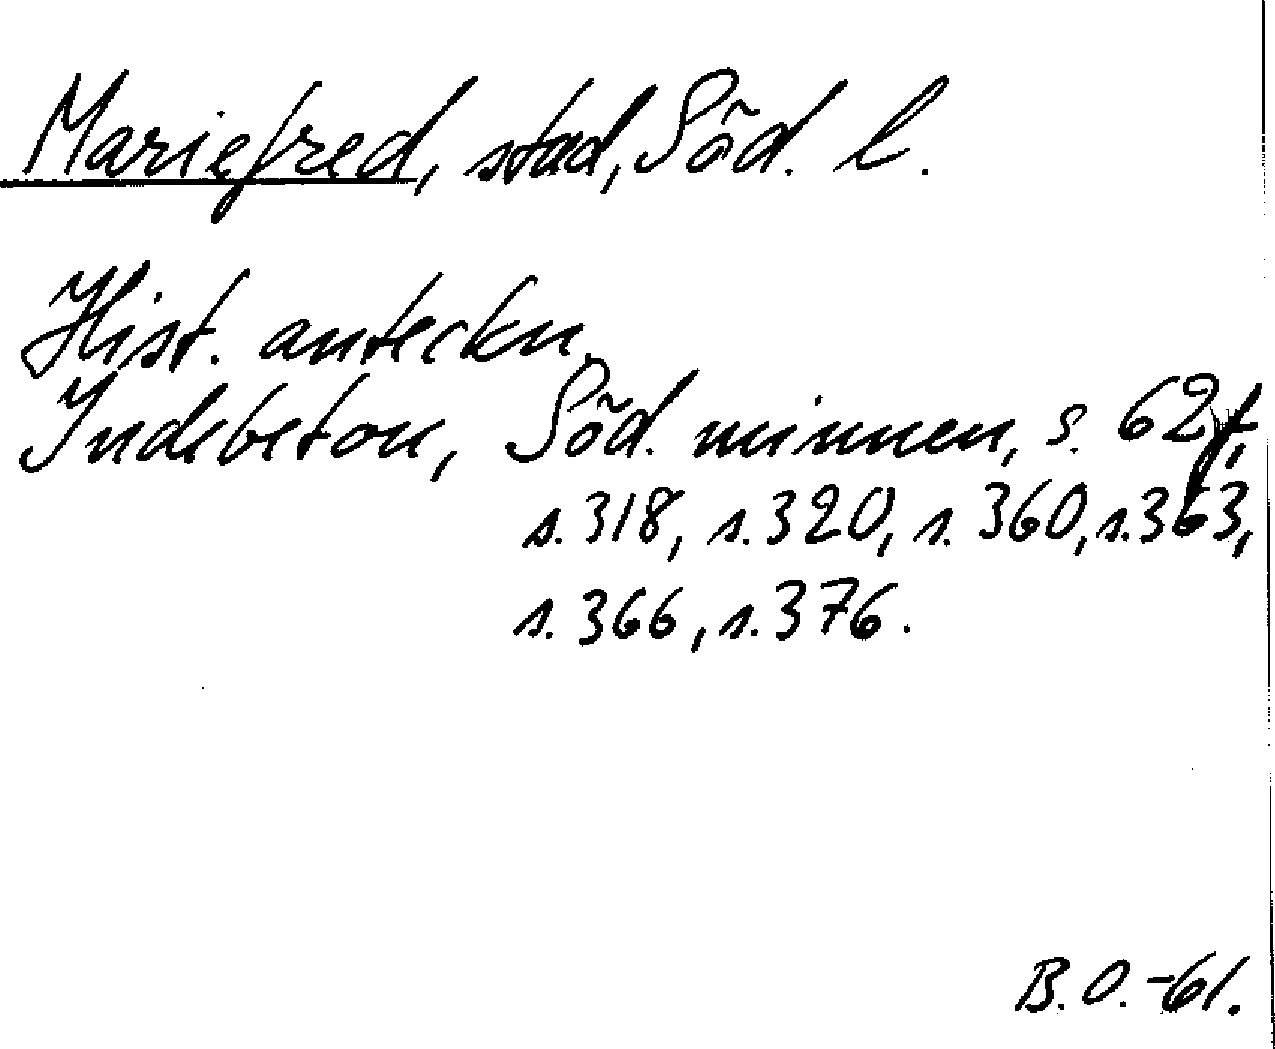 Mariefred, stad, Söd. l.
Hist. anteckn.
Indebetou, Söd. minnen, s. 62f,
s. 318, s. 320, s. 360, s. 363,
s. 366, s. 376.
B.O.-61.